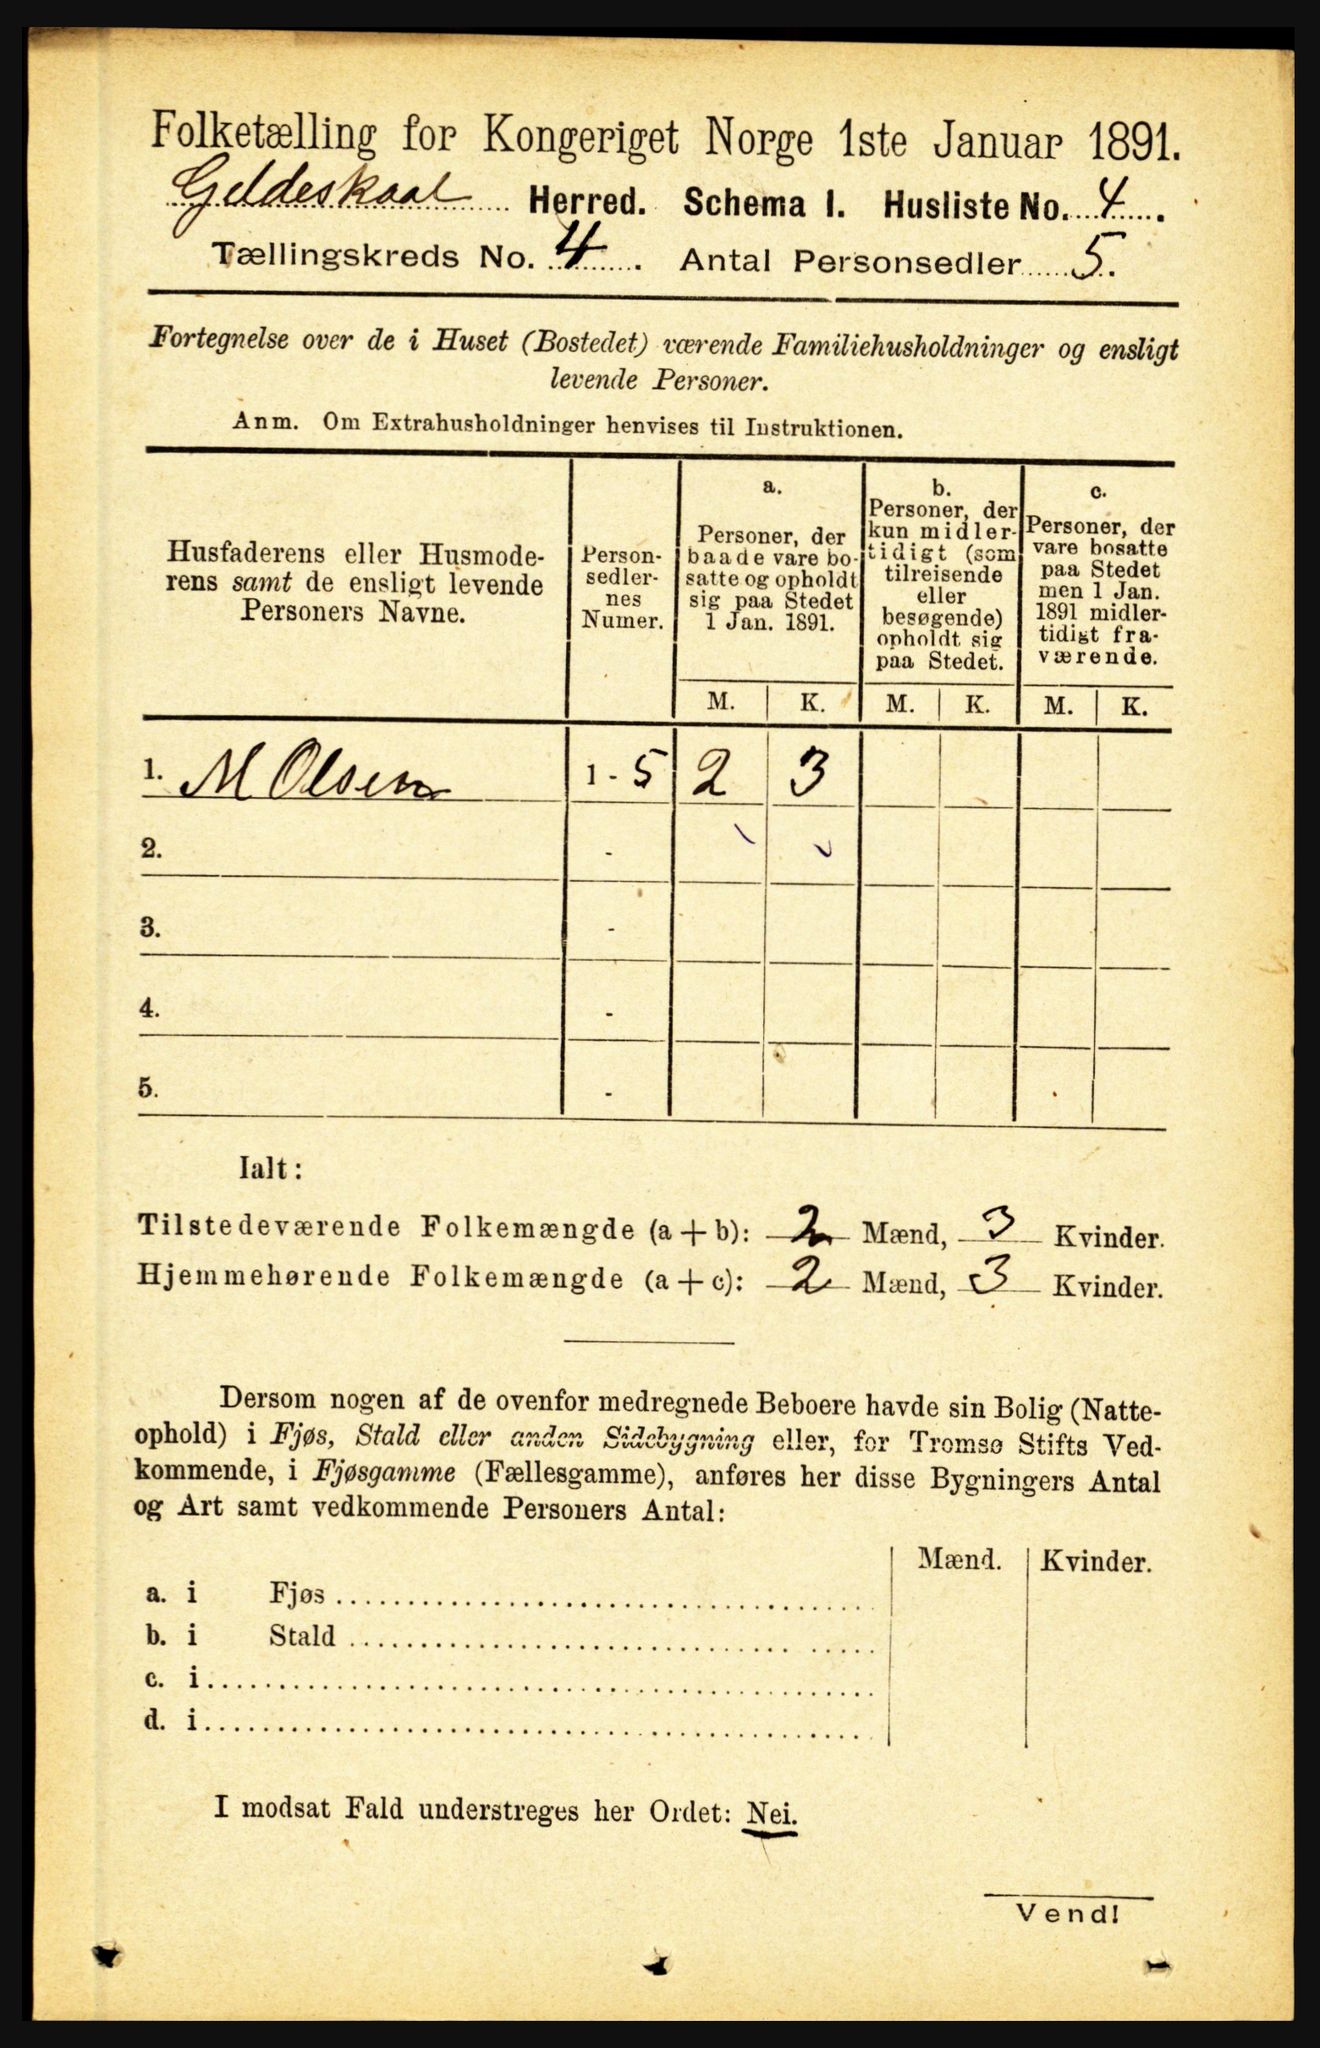 Folketælling for Kongeriget Norge 1ste Januar 1891.
Gildeskaal Herred. Schema I. Husliste No. 4.
Tællingskreds No. 4. Antal Personsedler 5.
Fortegnelse over de i Huset (Bostedet) værende Familiehusholdninger og ensligt
levende Personer.
Anm. Om Extrahusholdninger henvises til Instruktionen.
Husfaderens eller Husmode-
rens samt de ensligt levende
Personers Navne.
Person-
sedler-
nes
Numer.
a.
Personer, der
baade vare bo-
satte og opholdt
sig paa Stedet
1 Jan. 1891.
b.
Personer, der
kun midler-
tidigt (som
tilreisende
eller
besøgende)
opholdt sig
paa Stedet.
c.
Personer, der
vare bosatte
paa Stedet
men 1 Jan.
1891 midler-
tidigt fra-
værende.
M. K. M. K. M. K.
1. M Olsen 1 - 5 2 3
2. -
3. -
4. -
5. -
Ialt:
Tilstedeværende Folkemængde (a + b): 2 Mænd, 3 Kvinder.
Hjemmehørende Folkemængde (a + c): 2 Mænd, 3 Kvinder.
Dersom nogen af de ovenfor medregnede Beboere havde sin Bolig (Natte-
ophold) i Fjøs, Stald eller anden Sidebygning eller, for Tromsø Stifts Ved-
kommende, i Fjøsgamme (Fællesgamme), anføres her disse Bygningers Antal
og Art samt vedkommende Personers Antal:
Mænd. Kvinder.
a. i Fjøs
b. i Stald
c. i
d. i
I modsat Fald understreges her Ordet: Nei.
Vend!